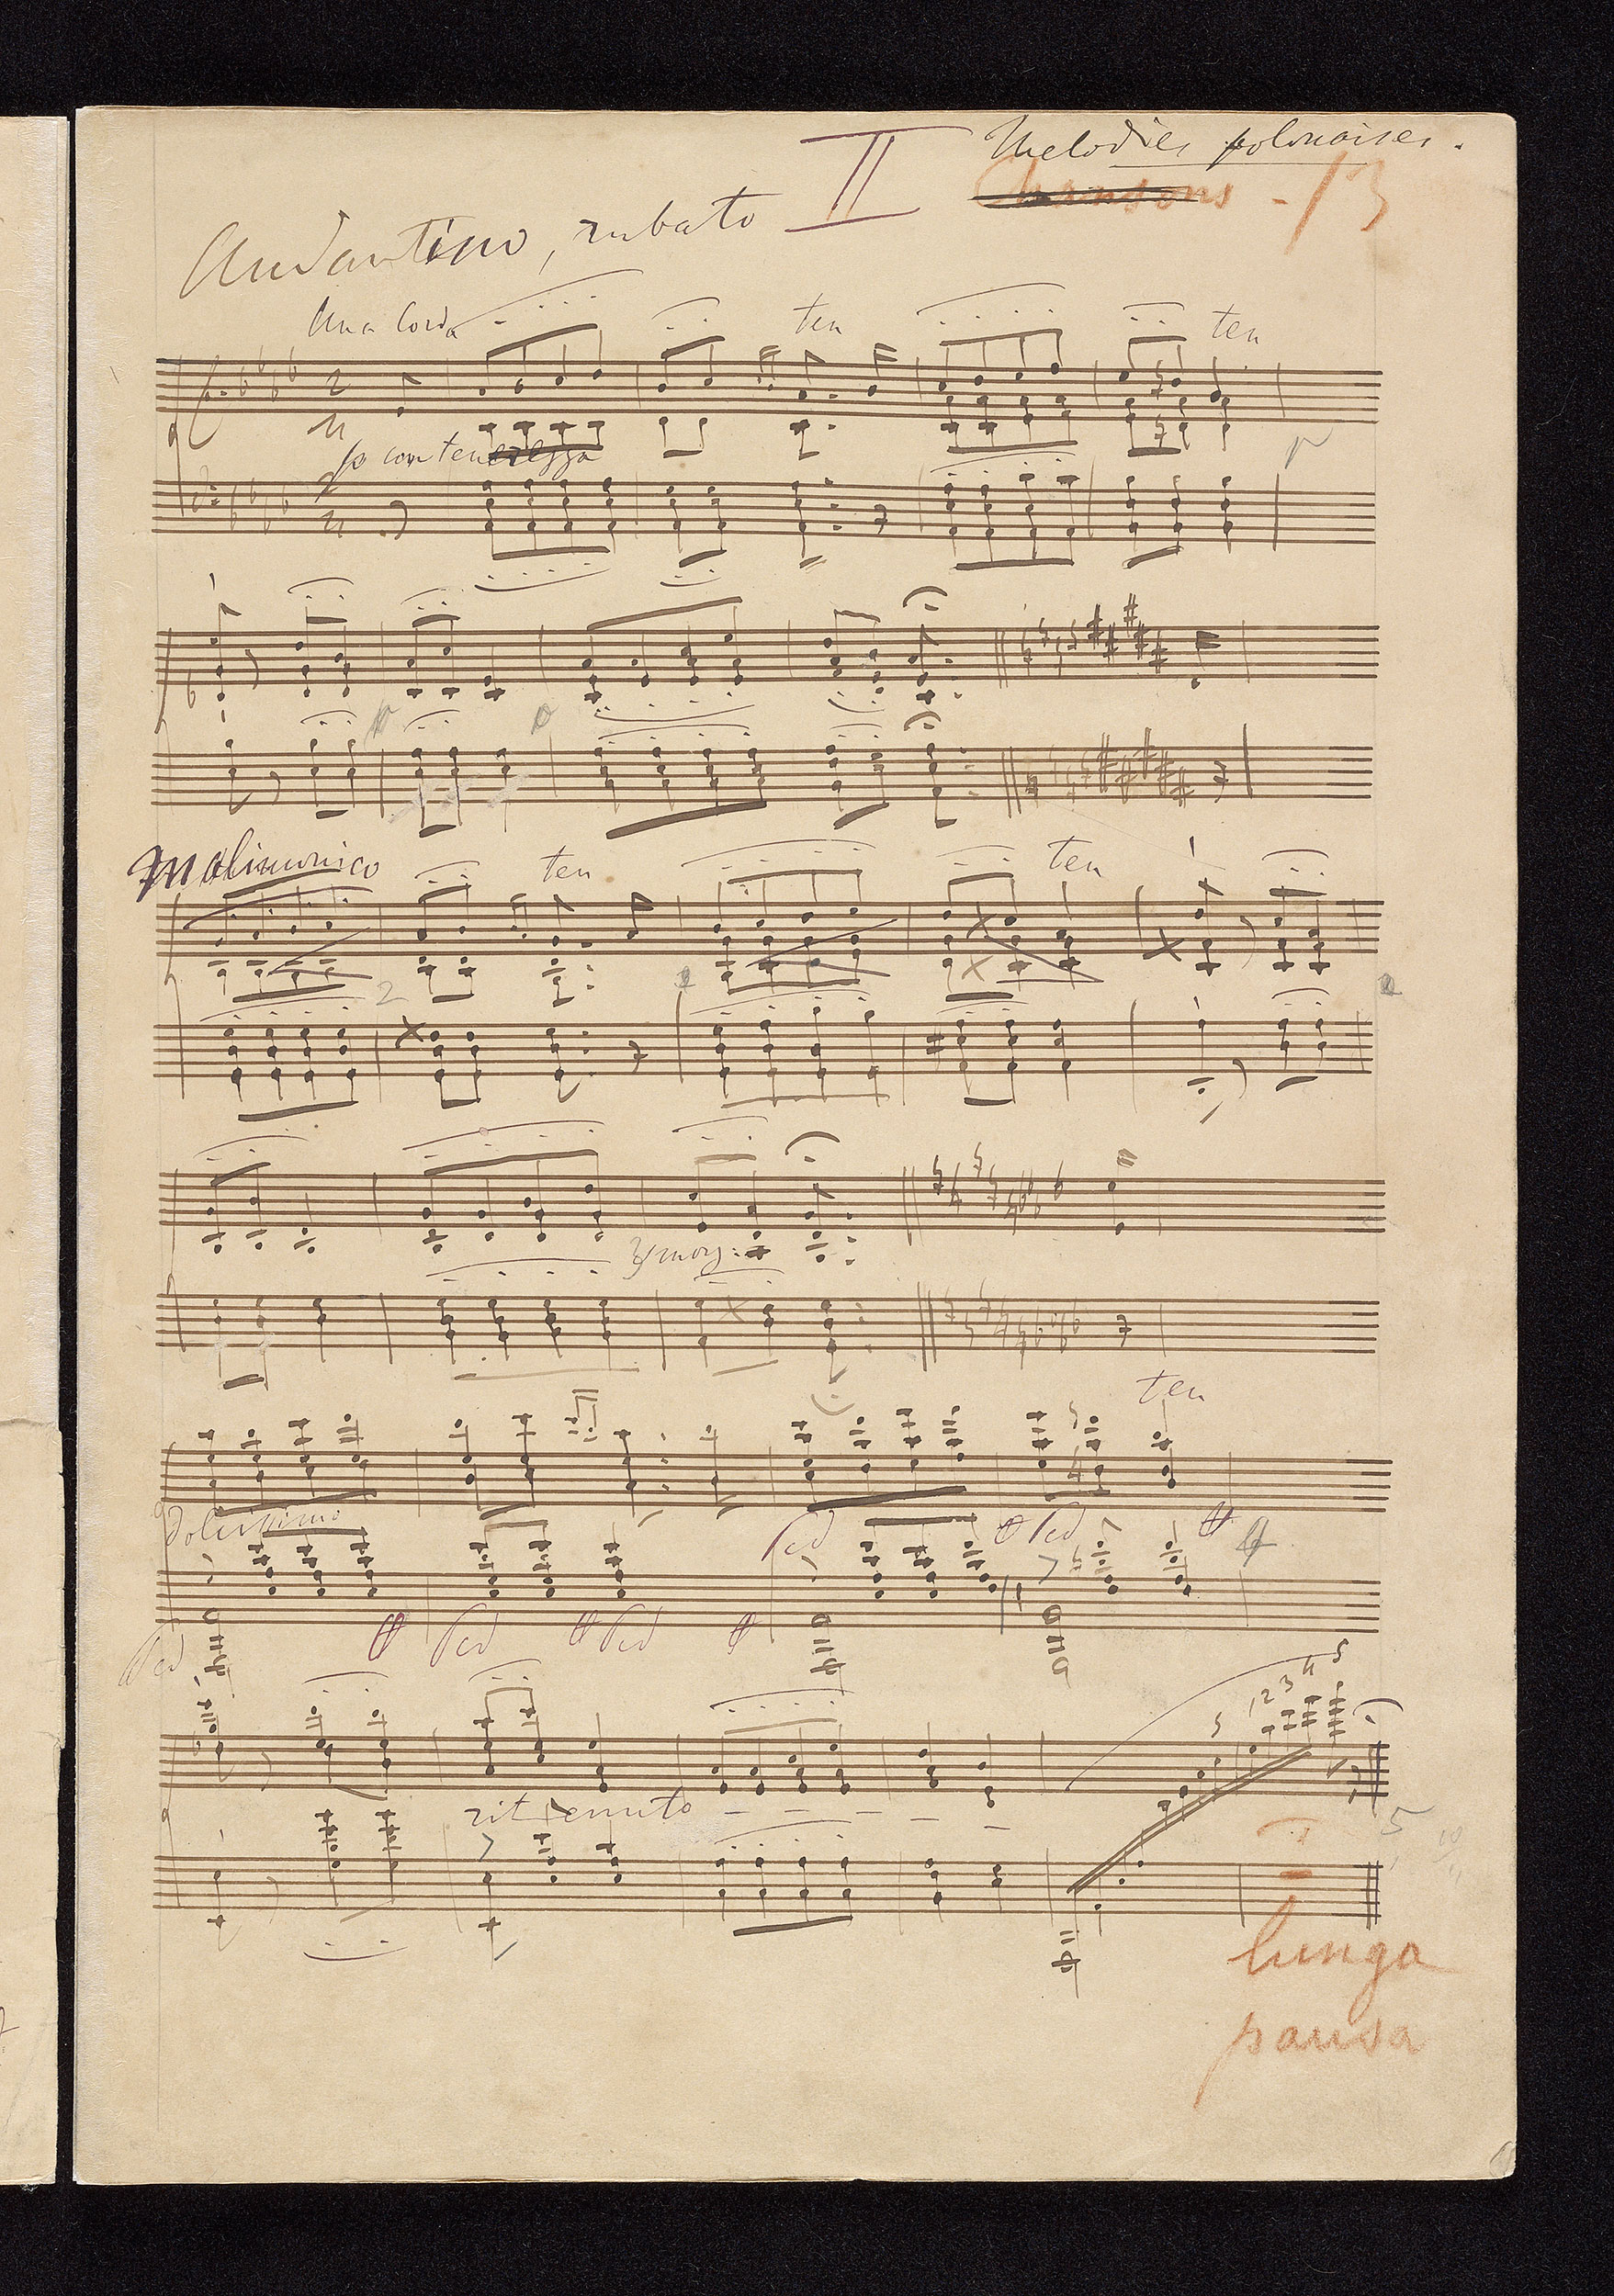 II Melodies polonaises.
Chansons - 13
Andantino, rubato
Una Corda ten ten
2
4
p con tenerezza
2
4
malinconico ten ten
2
smorz:
ten
dolcissimo
Ped Ped
Ped Ped Ped
5 1 2 3 4 5
ritenuto
5
lunga
pausa